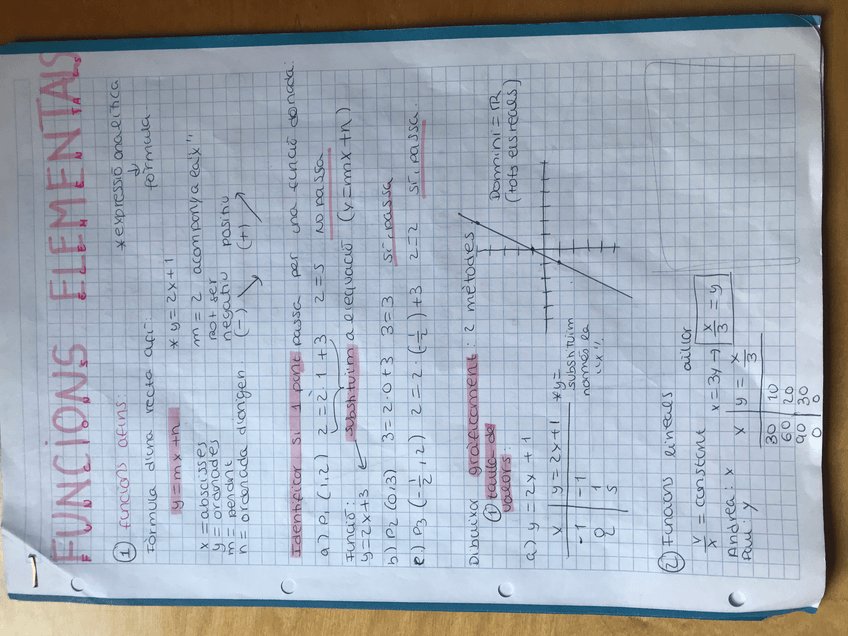 FUNCIONS ELEMENTALS
FUNCIONS ELEMENTALS
① Funcions afins: * expressió analítica
Fórmula d'una recta afí: fórmula
y = mx + n * y = 2x + 1
x = abscisses m = 2 acompanya la "x"
y = ordenades pot ser
m = pendent negatiu positiu
n = ordenada d'origen (-) (+)
Identificar si 1 punt passa per una funció donada:
a) P₁ (1,2) 2 = 2·1+3 2 = 5 No passa
Funció: substituïm a l'equació (y = mx + n)
y = 2x+3
b) P₂ (0,3) 3 = 2·0+3 3 = 3 Sí, passa
c) P₃ (-1/2, 2) 2 = 2·(-1/2)+3 2 = 2 Sí, passa.
Dibuixar gràficament: 2 mètodes
① taula de
valors:
a) y = 2x + 1 Domini = ℝ
(tots els reals)
x y = 2x+1 * y =
-1 -1 substituïm
0 1 només la
2 5 "x".
② Funcions lineals aïllar
y/x = constant x = 3y → x/3 = y
Andrea: x x y = x/3
Pau: y 30 10
60 20
90 30
0 0